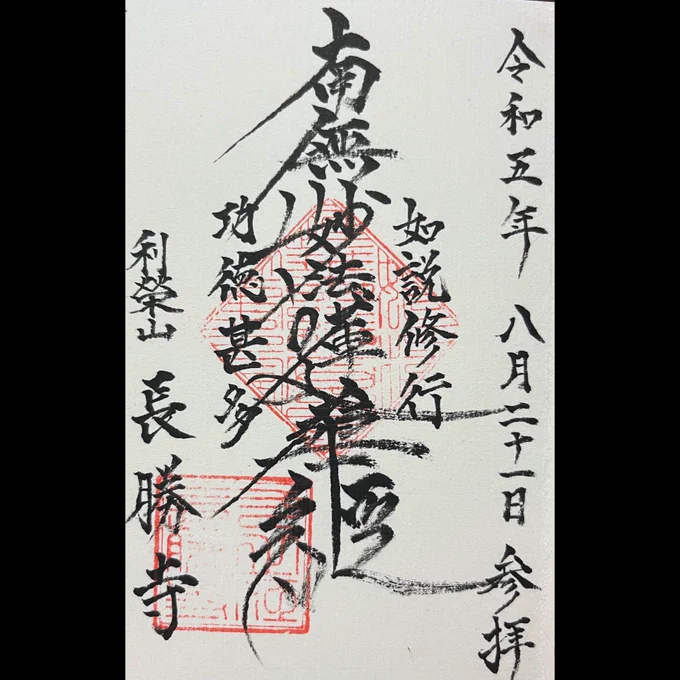 令和五年 八月二十一日 参拝
如説修行
南無妙法蓮華經
功徳甚多
利榮山
長勝寺